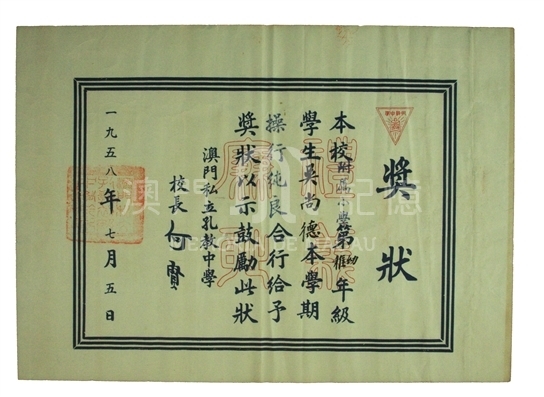 獎狀
本校附屬小學第幼稚年級
學生吳尚德本學期
操行純良合行給予
獎狀以示鼓勵此狀
澳門私立孔教中學
校長
一九五八年七月五日
澳門記憶
MEMÓRIA DE MACAU